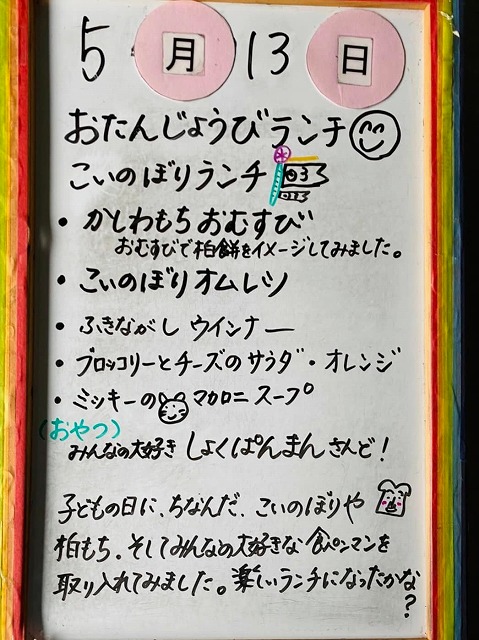 5月13日
おたんじょうびランチ
こいのぼりランチ
・かしわもちおむすび
おむすびで柏餅をイメージしてみました。
・こいのぼりオムレツ
・ふきながしウインナー
・ブロッコリーとチーズのサラダ・オレンジ
・ミッキーのマカロニスープ
(おやつ)
みんなの大好きしょくぱんまんさんど!
子どもの日に、ちなんだ、こいのぼりや
柏もち、そしてみんなの大好きな食パンマンを
取り入れてみました。楽しいランチになったかな
?